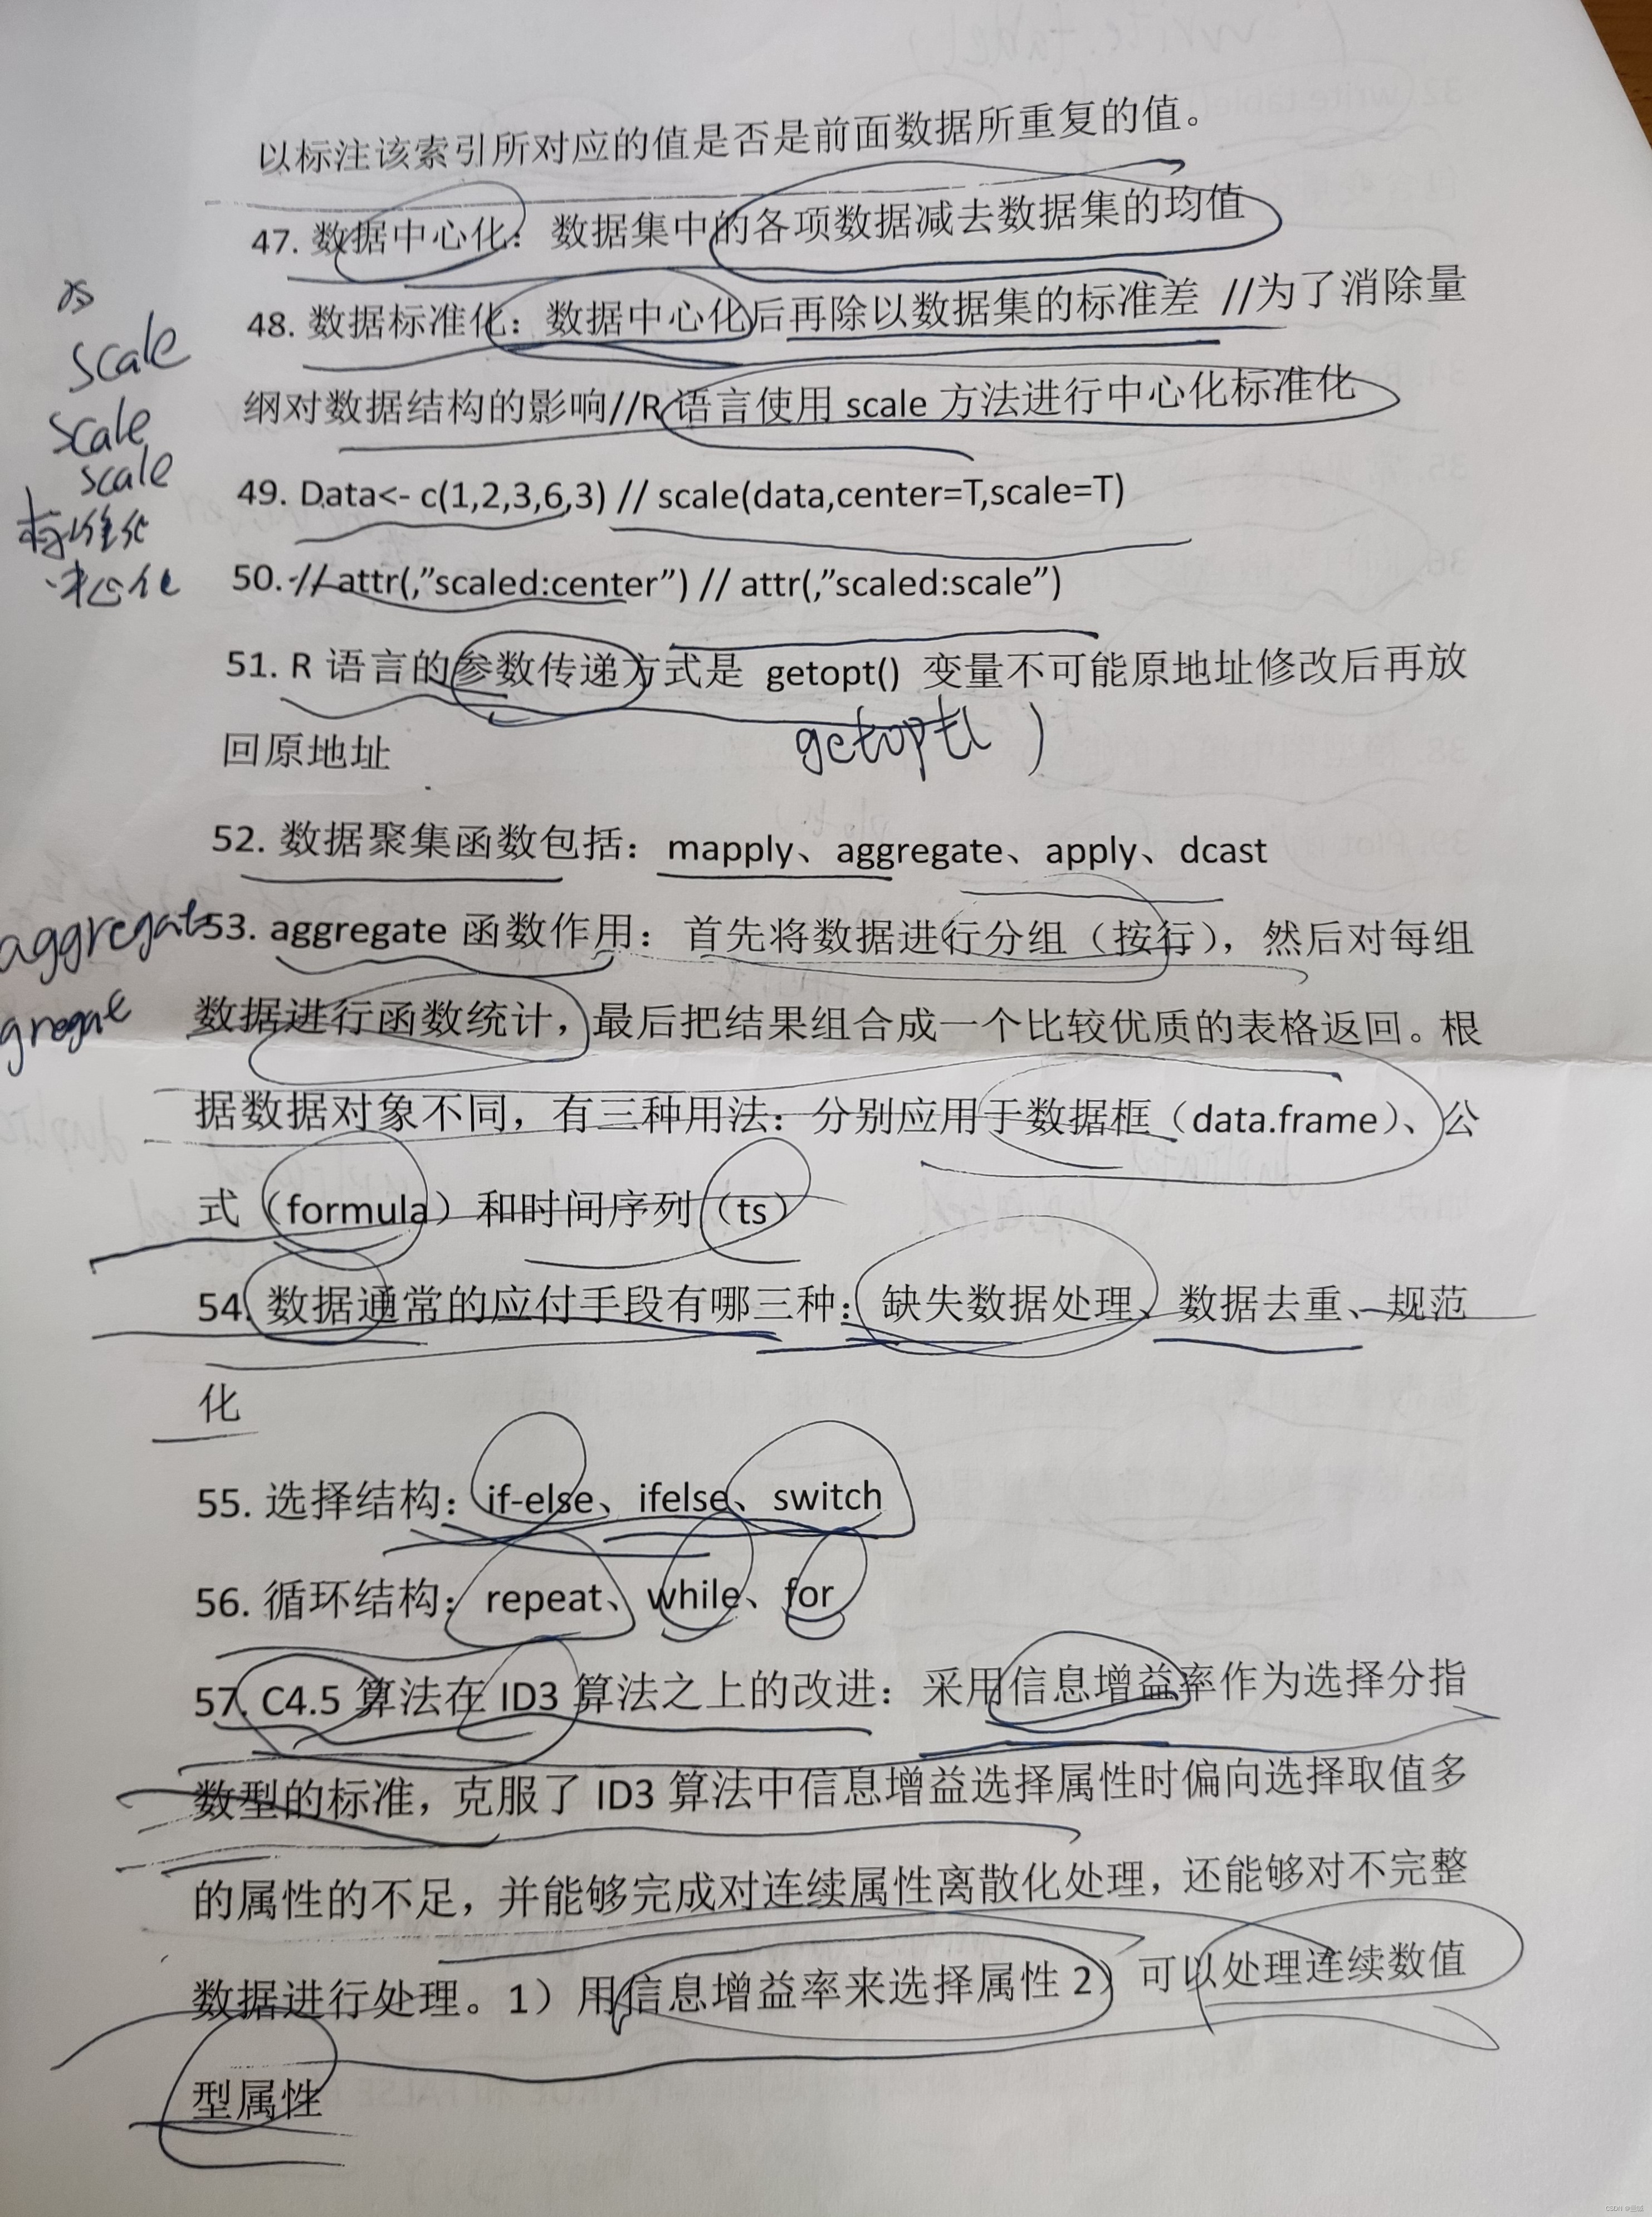 以标注该索引所对应的值是否是前面数据所重复的值。
47. 数据中心化：数据集中的各项数据减去数据集的均值
48. 数据标准化：数据中心化后再除以数据集的标准差 //为了消除量
纲对数据结构的影响//R 语言使用 scale 方法进行中心化标准化
scale
scale
scale
标准化
中心化
49. Data<- c(1,2,3,6,3) // scale(data,center=T,scale=T)
50. // attr(,”scaled:center”) // attr(,”scaled:scale”)
51. R 语言的参数传递方式是 getopt() 变量不可能原地址修改后再放
回原地址
getopt( )
52. 数据聚集函数包括：mapply、aggregate、apply、dcast
aggregate
gregate
53. aggregate 函数作用：首先将数据进行分组（按行），然后对每组
数据进行函数统计，最后把结果组合成一个比较优质的表格返回。根
据数据对象不同，有三种用法：分别应用于数据框（data.frame）、公
式（formula）和时间序列（ts）
54. 数据通常的应付手段有哪三种：缺失数据处理、数据去重、规范
化
55. 选择结构：if-else、ifelse、switch
56. 循环结构：repeat、while、for
57. C4.5 算法在 ID3 算法之上的改进：采用信息增益率作为选择分指
数型的标准，克服了 ID3 算法中信息增益选择属性时偏向选择取值多
的属性的不足，并能够完成对连续属性离散化处理，还能够对不完整
数据进行处理。1）用信息增益率来选择属性 2）可以处理连续数值
型属性